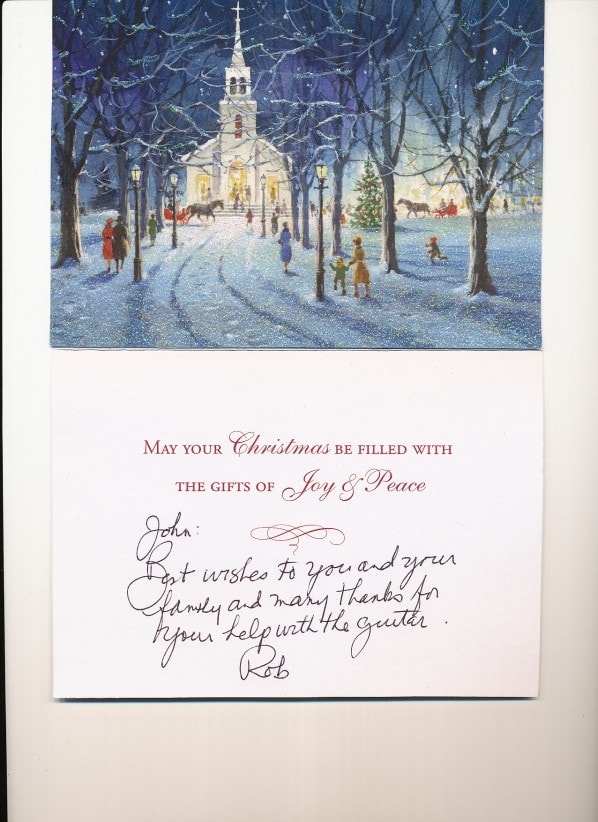 MAY YOUR Christmas BE FILLED WITH
THE GIFTS OF Joy & Peace
John:
Best wishes to you and your
family and many thanks for
your help with the guitar.
Rob